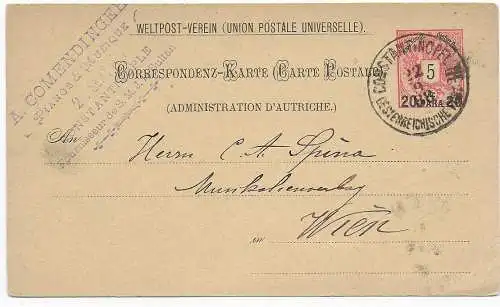 WELTPOST-VEREIN (UNION POSTALE UNIVERSELLE).
A. COMENDINGER
PIANOS & MUSIQUE
CONSTANTINOPLE
Fournisseur de S.M.I. le Sultan
CORRESPONDENZ-KARTE (CARTE POSTALE)
(ADMINISTRATION D'AUTRICHE).
CONSTANTINOPEL
OESTERREICHISCHE
5
20 PARA 20
An Herrn C. A. Spina
Musikalienverlag
in Wien